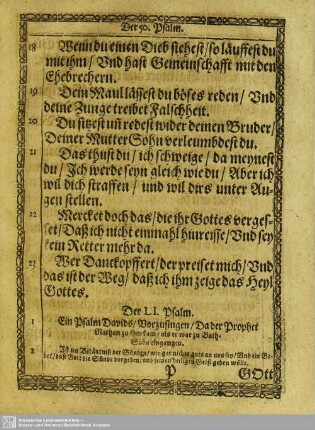 Der 50. Psalm.
18 Wenn du einen Dieb siehest / so läuffest du
mit ihm / Vnd hast Gemeinschafft mit den
Ehebrechern.
19 Dein Maul lässest du böses reden / Vnd
deine Zunge treibet Falschheit.
20. Du sitzest uñ redest wider deinen Bruder /
Deiner Mutter Sohn verleumbdest du.
21. Das thust du / ich schweige / da meynest
du / Ich werde seyn gleich wie du / Aber ich
wil dich straffen / und wil dirs unter Au-
gen stellen.
22 Mercket doch das / die ihr Gottes verges-
set / Daß ich nicht einmahl hinreisse / Vnd sey
kein Retter mehr da.
23 Wer Danck opffert / der preiset mich / Vnd
das ist der Weg / daß ich ihm zeige das Heyl
Gottes.
Der L I. Psalm.
1 Ein Psalm Davids / Vorzusingen / Da der Prophet
Nathan zu ihm kam / als er war zu Bath-
Seba eingangen.
2
bet / daß Gott die Sünde vergeben, und seinen heiligen Geist geben wölle.
P GOtt